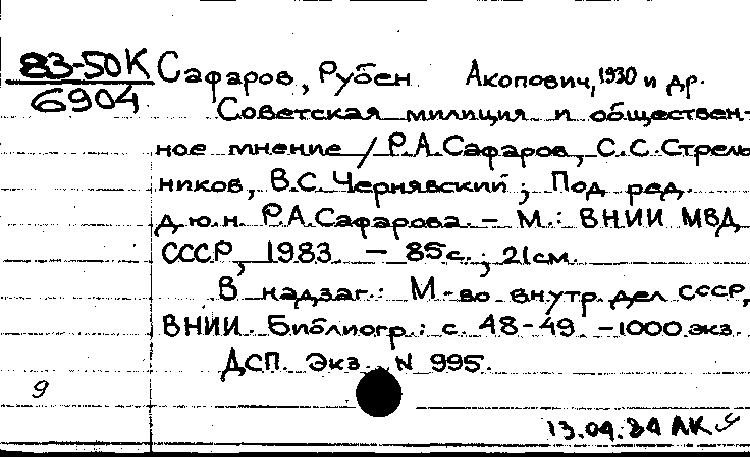 83-50К Сафаров, Рубен Акопович, 1930 и др.
6904 Советская милиция и обществен-
ное мнение / Р.А.Сафаров, С.С.Стрель
ников, В.С.Чернявский; Под ред.
д.ю.н. Р.А.Сафарова. – М.: ВНИИ МВД
СССР, 1983. – 85с.; 21см.
В надзаг.: М-во внутр. дел СССР,
ВНИИ. Библиогр.: с. 48-49. –1000 экз.
ДСП. Экз. N 995.
9
13.04.84 АК